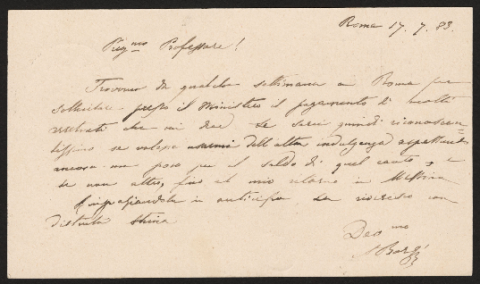 Roma 17. 7. 83.
Preg.mo Professore!
Trovomi da qualche settimana a Roma per
sollecitare presso il Ministero il pagamento di molti
arretrati che mi deve. Le sarei quindi riconoscen
tissimo se volesse usarmi dell'altra indulgenza aspettando
ancora un poco per il saldo di quel conto, e
se non altro, fino al mio ritorno in Messina
Ringraziandola in anticipo La riverisco con
distinta stima
Dev.mo